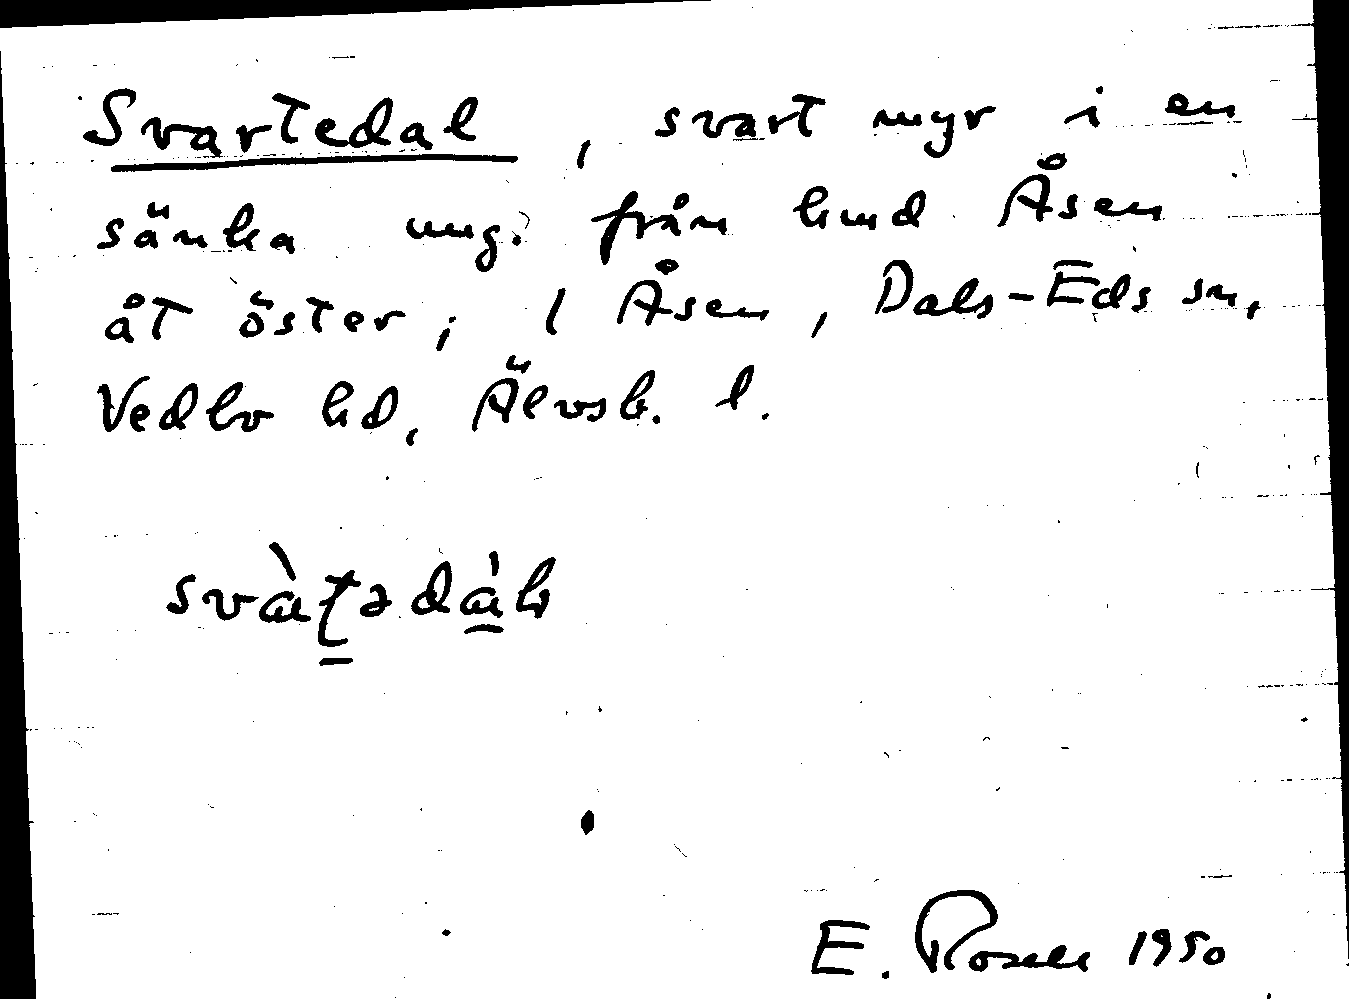 Svartedal, svart myr i en
sänka ung. från hmd Åsen
åt öster; 1 Åsen, Dals-Eds sn,
Vedbo hd, Älvsb. l.
E. Rosell 1950